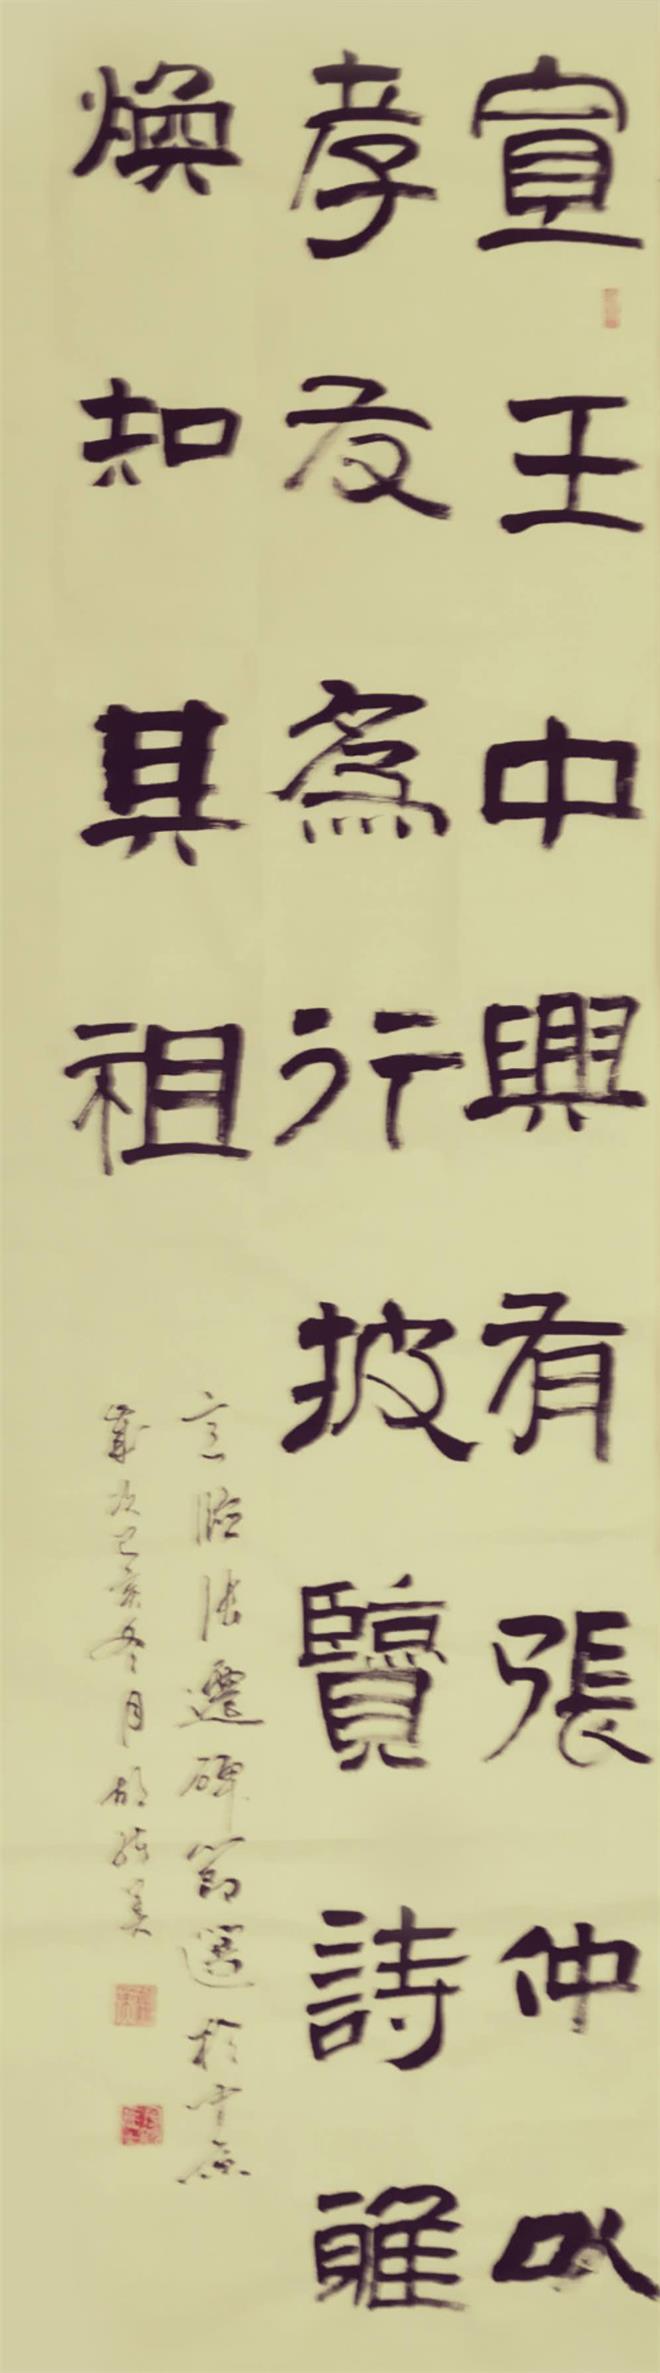 宣王中興有張仲以
孝友為行披覽詩雅
煥知其祖
意臨張遷碑節選於中原
歲次己亥冬月胡